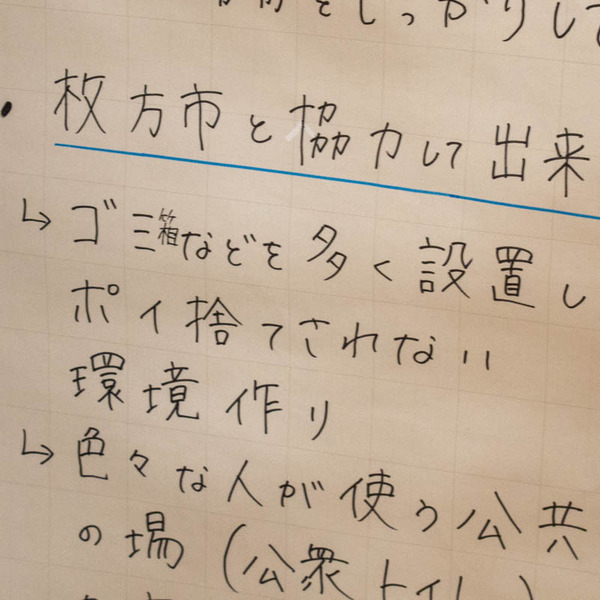 をしっかりして
・枚方市と協力して出来
↳ゴミ箱などを多く設置し
ポイ捨てされない
環境作り
↳色々な人が使う公共
の場(公衆トイレ)